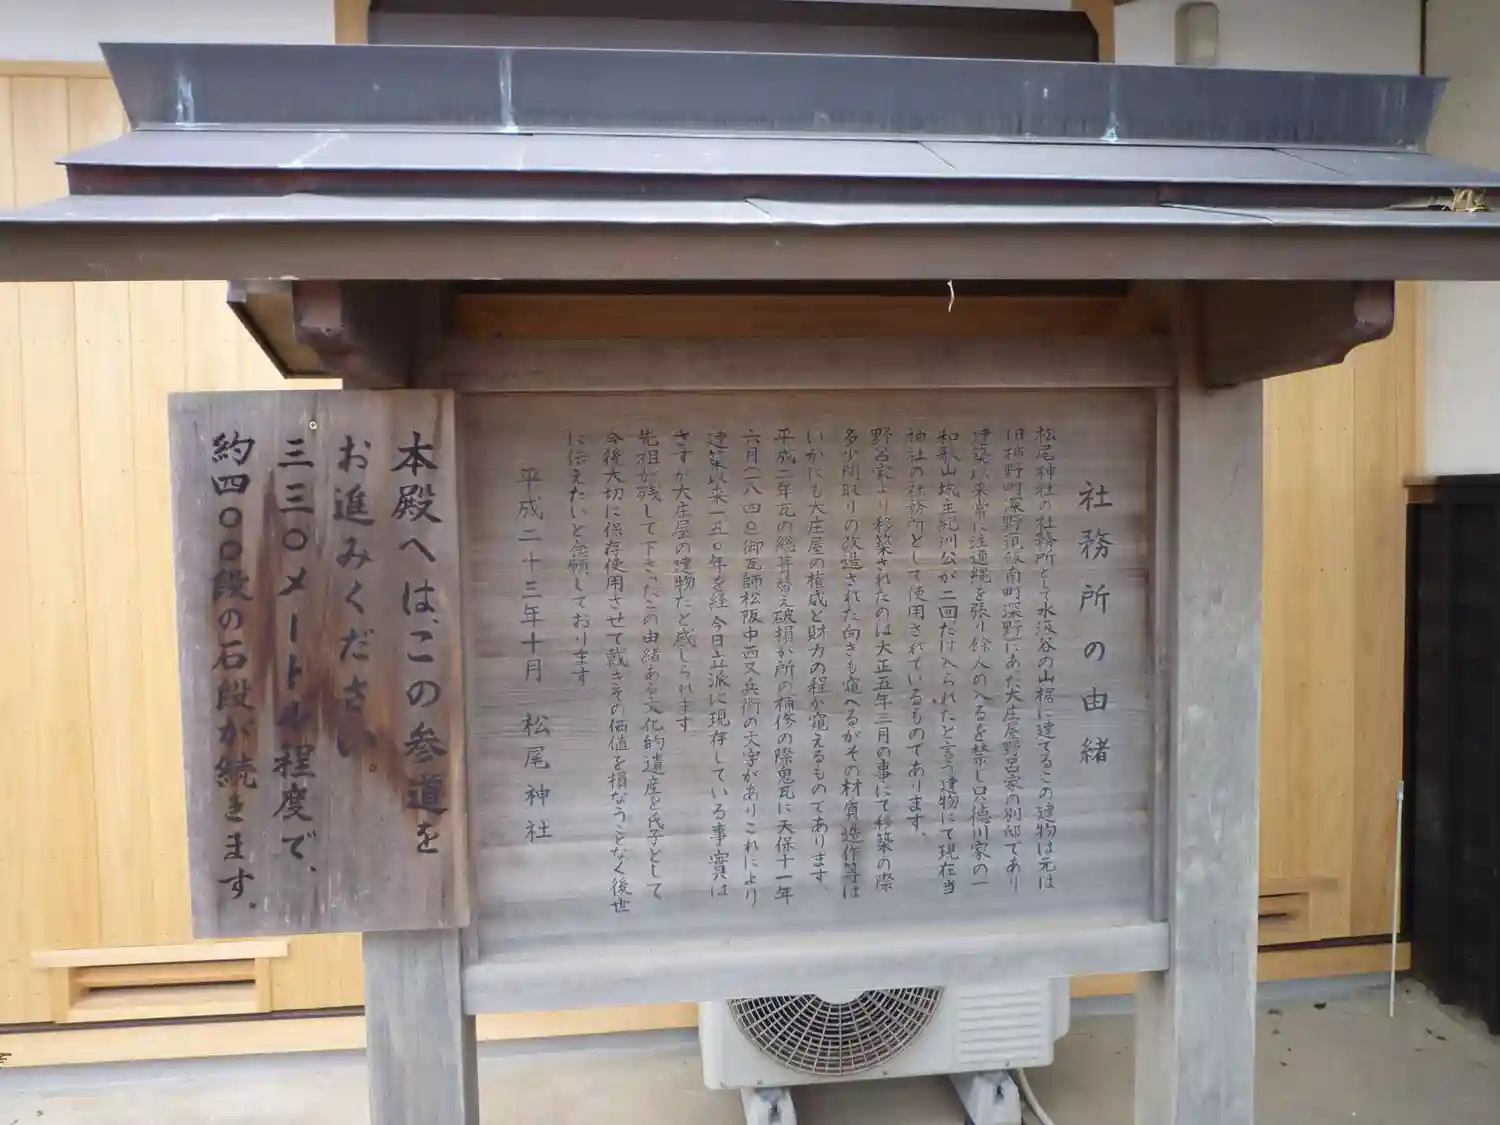 社務所の由緒
松尾神社の社務所として水汲谷の山裾に建てるこの建物は元は
旧柿野町深野現飯南町深野にあた大庄屋野呂家の別邸であり
建築以来常に注連縄を張り余人の入るを禁じ只徳川家の一
和歌山城主紀州公が二回だけ入られたと言う建物にて現在当
神社の社務所として使用されているものであります。
野呂家より移築されたのは大正五年三月の事にて移築の際
多少間取りの改造された向きも窺へるがその材質造作等は
いかにも大庄屋の権威と財力の程が窺えるものであります。
平成二年瓦の総葺替え破損か所の補修の際鬼瓦に天保十一年
六月(一八四〇)御瓦師松阪中西又兵衛の文字がありこれにより
建築以来一五〇年を経今日立派に現存している事実は
さすが大庄屋の建物だと感じられます
先祖が残して下さったこの由緒ある文化的遺産を氏子として
今後大切に保存使用させて戴きその価値を損なうことなく後世
に伝えたいと念願しております
平成二十三年十月 松尾神社
本殿へは、この参道を
お進みください。
三三〇メートル程度で、
約四〇〇段の石段が続きます。